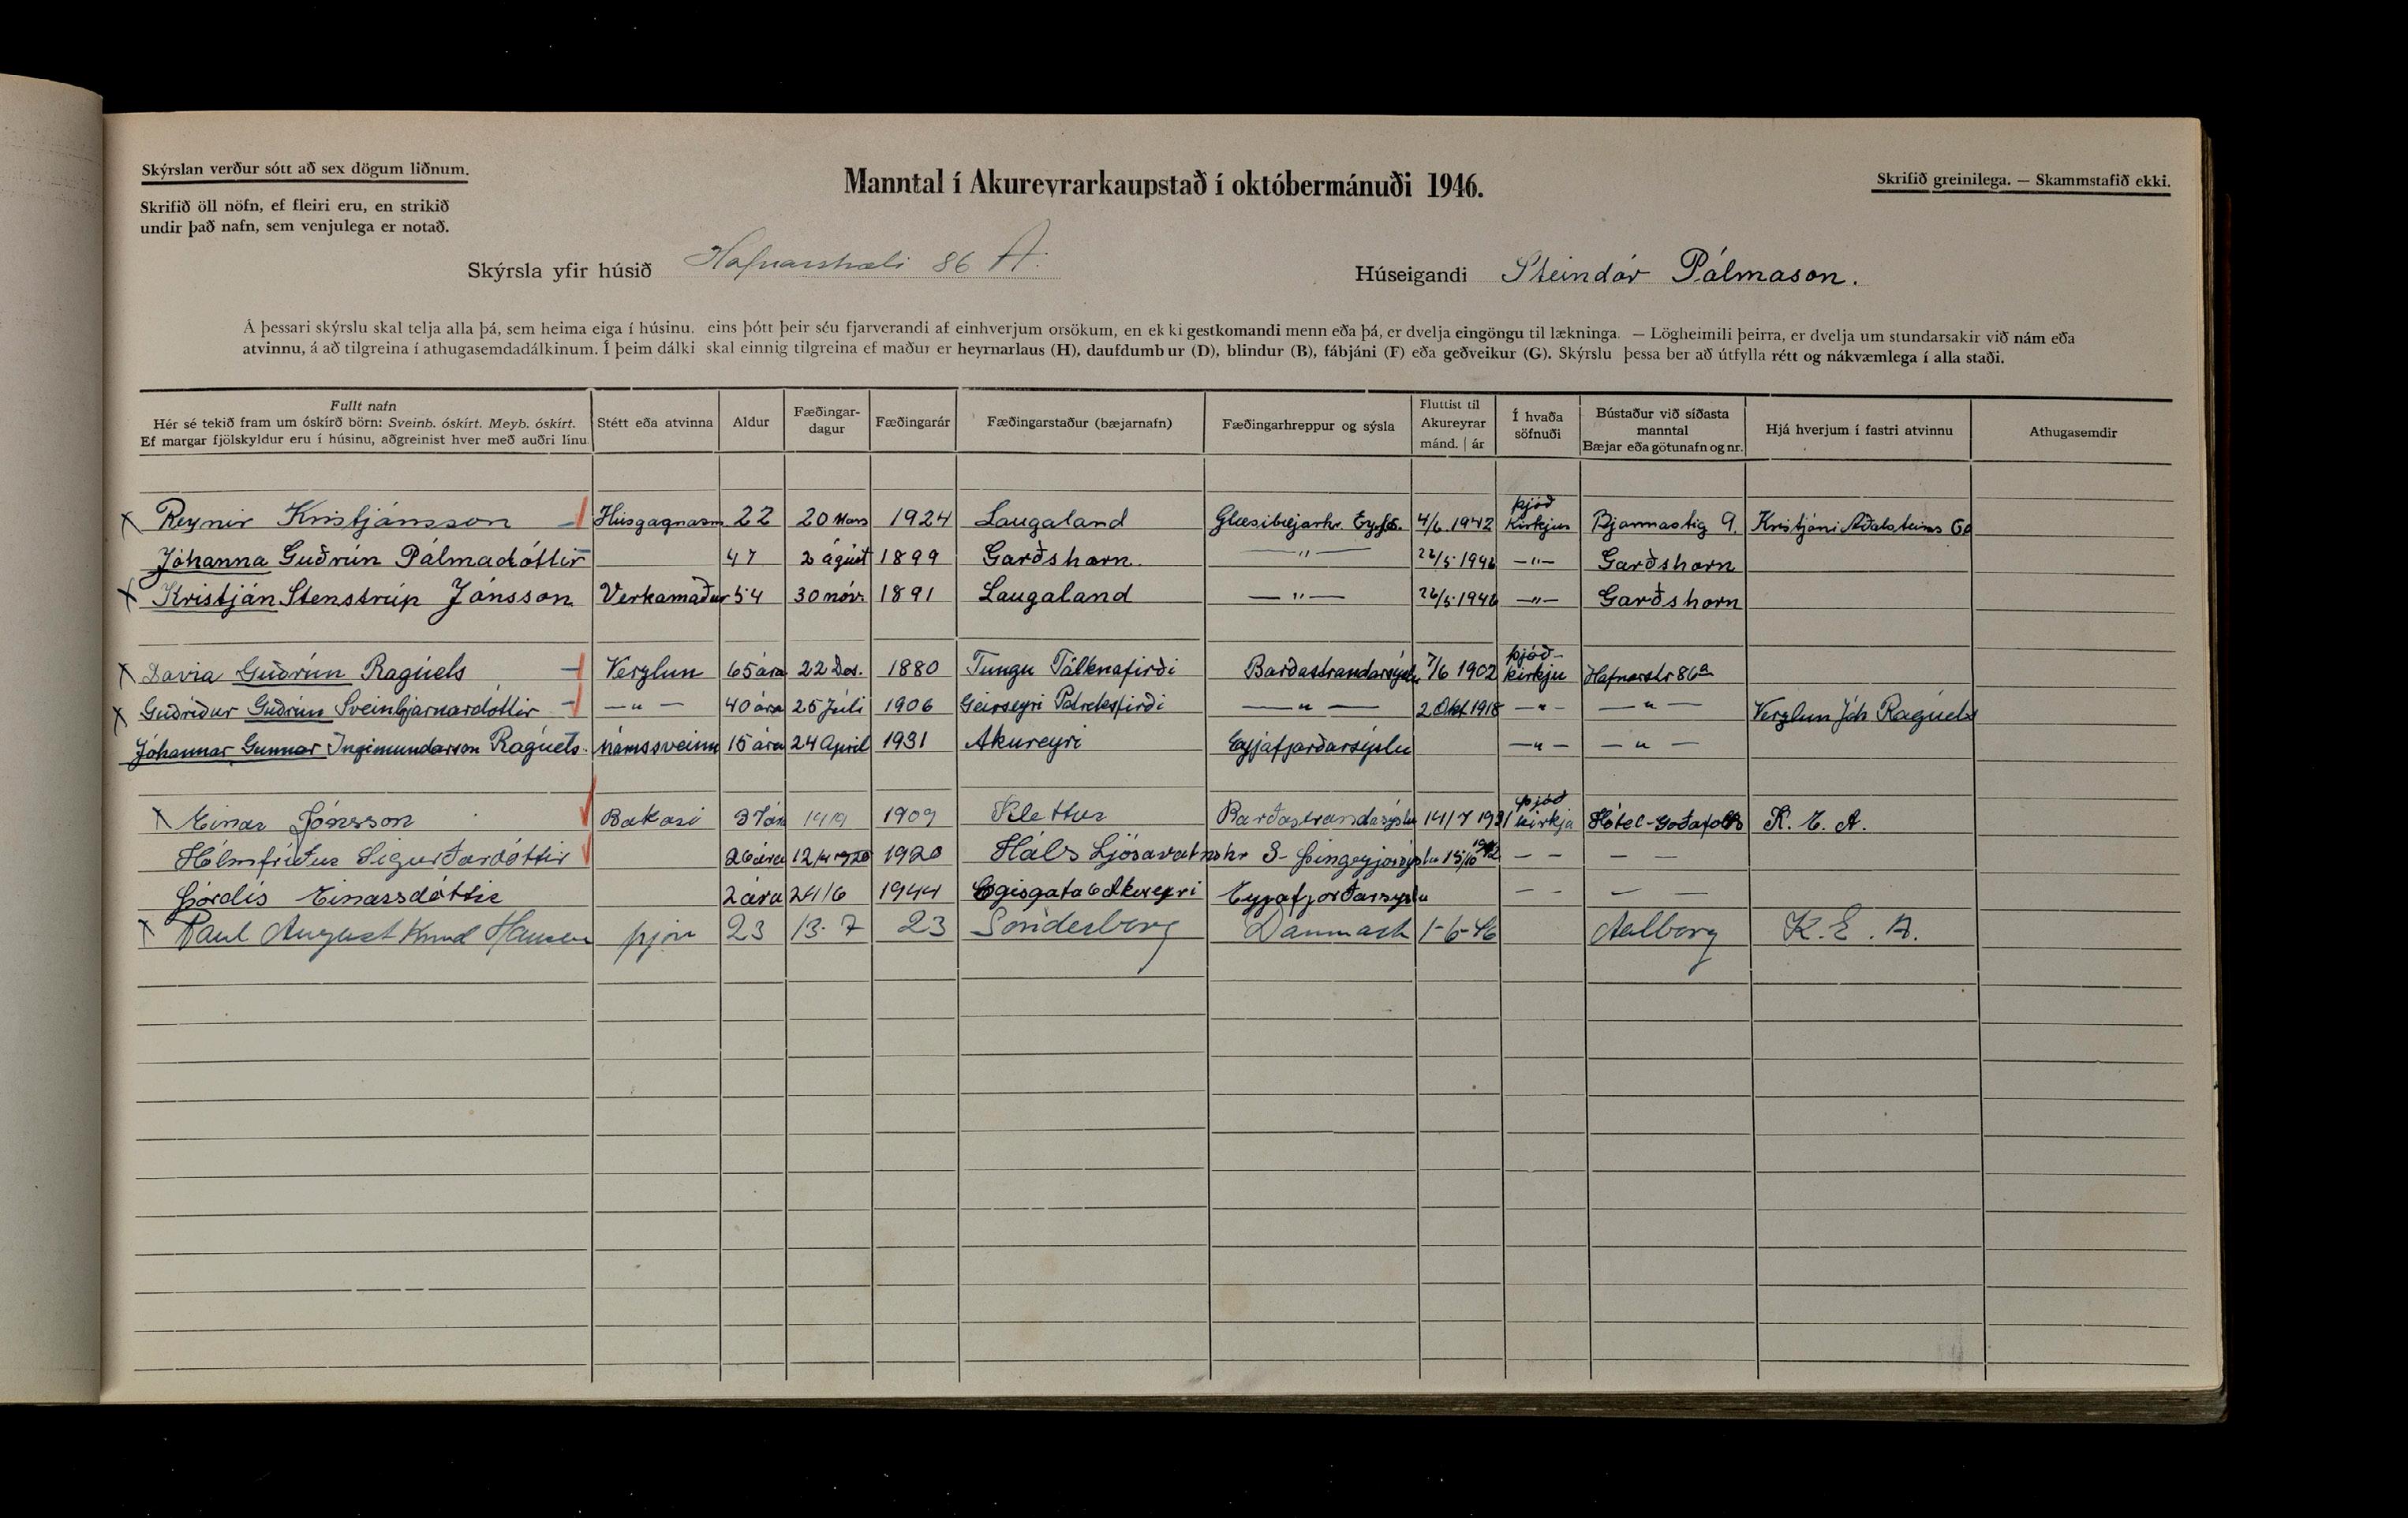 Skýrslan verður sótt að sex dögum liðnum.
Skrifið öll nöfn, ef fleiri eru, en strikið
undir það nafn, sem venjulega er notað.
Manntal í Akureyrarkaupstað í októbermánuði 1946.
Skrifið greinilega. — Skammstafið ekki.
Skýrsla yfir húsið Hafnarstræti 86 A. Húseigandi Steindór Pálmason.
Á þessari skýrslu skal telja alla þá, sem heima eiga í húsinu. eins þótt þeir séu fjarverandi af einhverjum orsökum, en ekki gestkomandi menn eða þá, er dvelja eingöngu til lækninga. — Lögheimili þeirra, er dvelja um stundarsakir við nám eða
atvinnu, á að tilgreina í athugasemdadálkinum. Í þeim dálki skal einnig tilgreina ef maður er heyrnarlaus (H), daufdumbur (D), blindur (B), fábjáni (F) eða geðveikur (G). Skýrslu þessa ber að útfylla rétt og nákvæmlega í alla staði.
Fullt nafn
Hér sé tekið fram um óskírð börn: Sveinb. óskírt. Meyb. óskírt.
Ef margar fjölskyldur eru í húsinu, aðgreinist hver með auðri línu.
Stétt eða atvinna
Aldur
Fæðingar-
dagur
Fæðingarár
Fæðingarstaður (bæjarnafn)
Fæðingarhreppur og sýsla
Fluttist til
Akureyrar
mánd. | ár
Í hvaða
söfnuði
Bústaður við síðasta
manntal
Bæjar eða götunafn og nr.
Hjá hverjum í fastri atvinnu
Athugasemdir
x Reynir Kristjánsson Húsgagnasm 22 20 Mars 1924 Laugaland Glæsibæjarhr. Eyjfs. 4/6 1942 þjóð Kirkjun Bjarmastíg 9. Kristjáni Aðalsteinss
Jóhanna Guðrún Pálmadóttir 47 2 ágúst 1899 Garðshorn —"— 26/5 1946 —"— Garðshorn
x Kristján Stenstrúp Jónsson Verkamaður 54 30 nóv. 1891 Laugaland —"— 26/5 1946 —"— Garðshorn
x Davia Guðrún Ragúels Verzlun 65 ára 22 Des. 1880 Tungu Tálknafirði Barðastrandarsýslu 7/6 1902 þjóð- kirkju Hafnarstr 86a
x Guðríður Guðrún Sveinbjarnardóttir —"— 40 ára 25 Júlí 1906 Geirseyri Patreksfirði —"— 2 Okt 1918 —"— —"— Verzlun Jóh Ragúels
Jóhannar Gunnar Ingimundarson Ragúels. Námssveinn 15 ára 24 Apríl 1931 Akureyri Eyjafjarðarsýslu —"— —"—
x Einar Jónsson Bakari 37 ára 14/9 1909 Klettur Barðastrandasýslu 14/7 1931 þjóð kirkja Hótel-Goðafoss K. E. A.
Hólmfríður Sigurðardóttir 26 ára 12/4 1920 1920 Háls Ljósavatnshr S-Þingeyjarsýslu 15/10 1942 — — — —
Þórdís Einarsdóttir 2 ára 24/6 1944 Ægisgata 6 Akureyri Eyjafjorðarsýslu — — — —
x Paul August Knud Hansen þjón 23 13. 7 23 Sonderborg Danmark 1-6-46 Aalborg K. E. A.